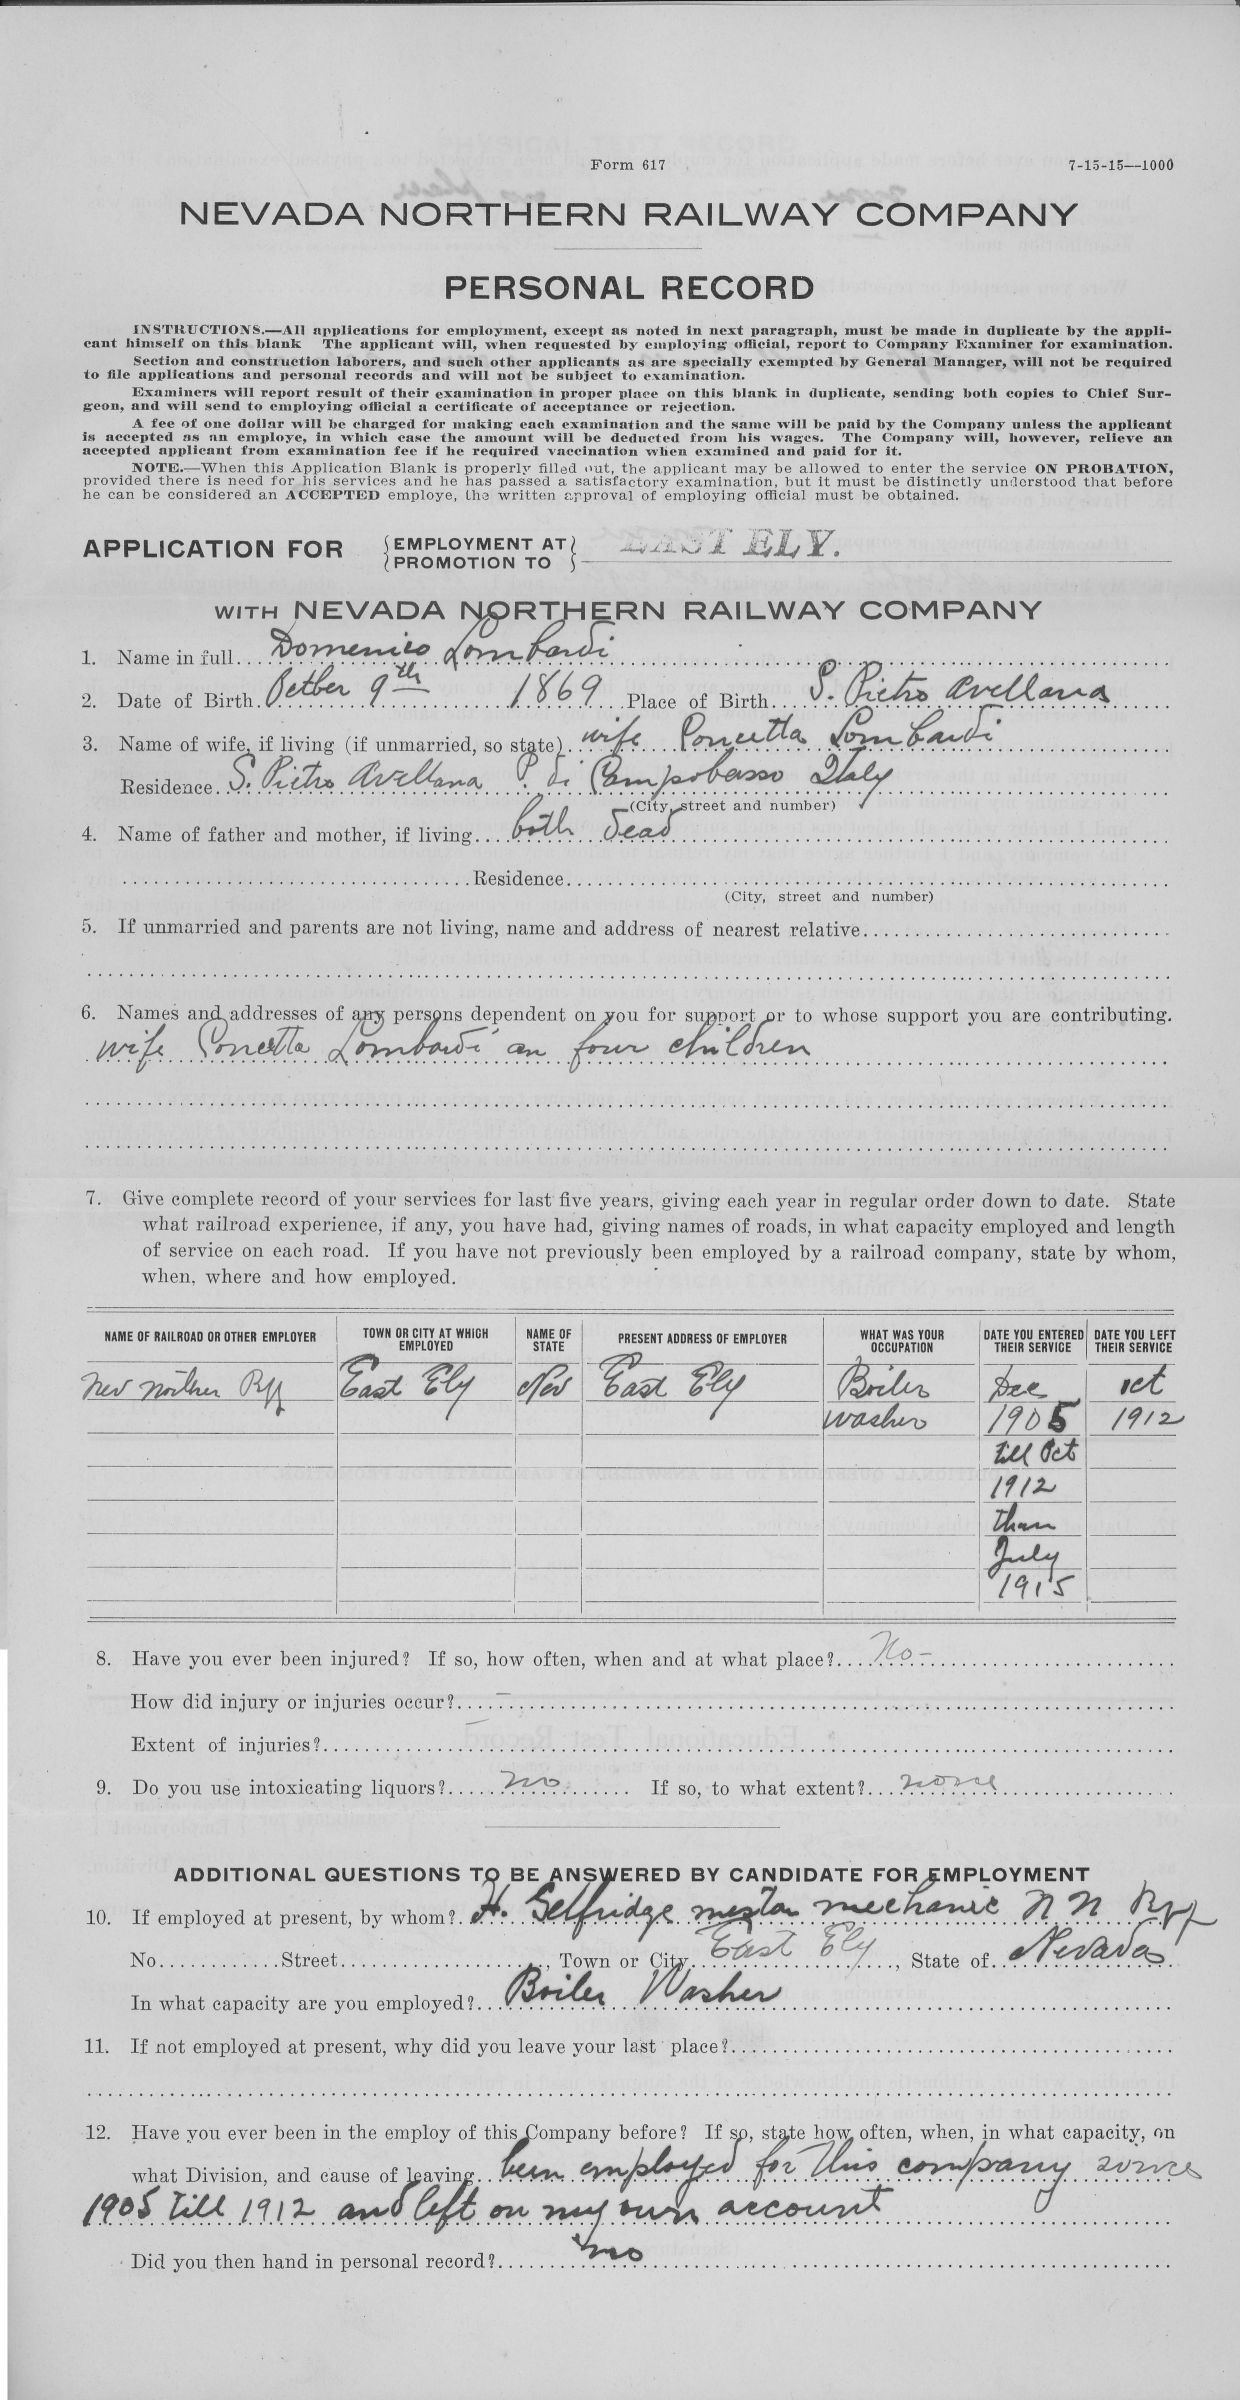 Form 617
7-15-15—1000
NEVADA NORTHERN RAILWAY COMPANY
PERSONAL RECORD
INSTRUCTIONS.—All applications for employment, except as noted in next paragraph, must be made in duplicate by the appli-
cant himself on this blank The applicant will, when requested by employing official, report to Company Examiner for examination.
Section and construction laborers, and such other applicants as are specially exempted by General Manager, will not be required
to file applications and personal records and will not be subject to examination.
Examiners will report result of their examination in proper place on this blank in duplicate, sending both copies to Chief Sur-
geon, and will send to employing official a certificate of acceptance or rejection.
A fee of one dollar will be charged for making each examination and the same will be paid by the Company unless the applicant
is accepted as an employe, in which case the amount will be deducted from his wages. The Company will, however, relieve an
accepted applicant from examination fee if he required vaccination when examined and paid for it.
NOTE.—When this Application Blank is properly filled out, the applicant may be allowed to enter the service ON PROBATION,
provided there is need for his services and he has passed a satisfactory examination, but it must be distinctly understood that before
he can be considered an ACCEPTED employe, the written approval of employing official must be obtained.
APPLICATION FOR {EMPLOYMENT AT} EAST ELY.
{PROMOTION TO}
WITH NEVADA NORTHERN RAILWAY COMPANY
1. Name in full Domenico Lombardi
2. Date of Birth. Octber 9th 1869 Place of Birth S. Pietro Avellana
3. Name of wife, if living (if unmarried, so state) wife Concetta Lombardi
Residence. S. Pietro Avellana P. di Campobasso Italy
(City, street and number)
4. Name of father and mother, if living both dead
Residence
(City, street and number)
5. If unmarried and parents are not living, name and address of nearest relative
6. Names and addresses of any persons dependent on you for support or to whose support you are contributing.
wife Concetta Lombardi an four children
7. Give complete record of your services for last five years, giving each year in regular order down to date. State
what railroad experience, if any, you have had, giving names of roads, in what capacity employed and length
of service on each road. If you have not previously been employed by a railroad company, state by whom,
when, where and how employed.
NAME OF RAILROAD OR OTHER EMPLOYER TOWN OR CITY AT WHICH EMPLOYED NAME OF STATE PRESENT ADDRESS OF EMPLOYER WHAT WAS YOUR OCCUPATION DATE YOU ENTERED THEIR SERVICE DATE YOU LEFT THEIR SERVICE
Nev Northen Ry East Ely Nev East Ely Boiler Dec oct
washer 1905 1912
till Oct
1912
than
July
1915
8. Have you ever been injured? If so, how often, when and at what place? No-
How did injury or injuries occur? –
Extent of injuries? –
9. Do you use intoxicating liquors? no If so, to what extent? none
ADDITIONAL QUESTIONS TO BE ANSWERED BY CANDIDATE FOR EMPLOYMENT
10. If employed at present, by whom? H. Selfridge mechanic N N Ry
No. Street , Town or City East Ely , State of Nevada
In what capacity are you employed? Boiler Washer
11. If not employed at present, why did you leave your last place?
12. Have you ever been in the employ of this Company before? If so, state how often, when, in what capacity, on
what Division, and cause of leaving. been employed for this company since
1905 till 1912 and left on my own account
Did you then hand in personal record? no